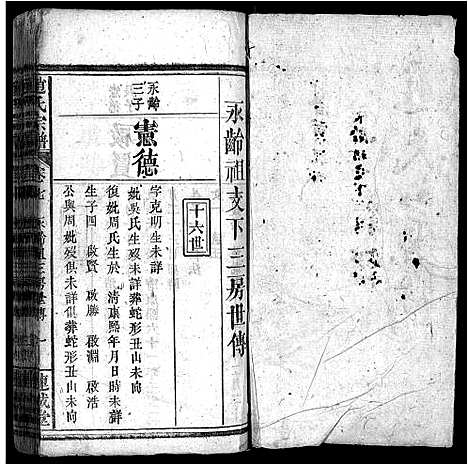 永齡祖支下三房世傳
十六世
永齡三子
憲德
字克明生未詳
妣吳氏生歿未詳葬蛇形丑山未向
復妣周氏生於 清康熙年月日時未詳
生子四 啟賢 啟勝 啟淵 啟浩
公與周妣歿俱未詳俱葬蛇形丑山未向
氏宗譜
永齡祖三房世傳 一